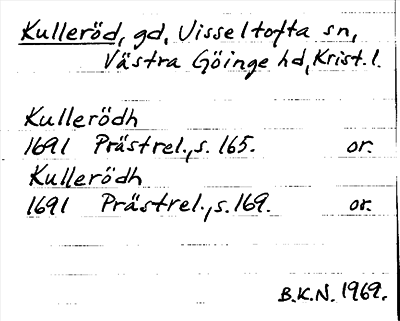 Kulleröd, gd, Visseltofta sn,
Västra Göinge hd, Krist. l.
Kullerödh
1691 Prästrel., s. 165. or.
Kullerödh
1691 Prästrel., s. 169. or.
B.K.N. 1969.